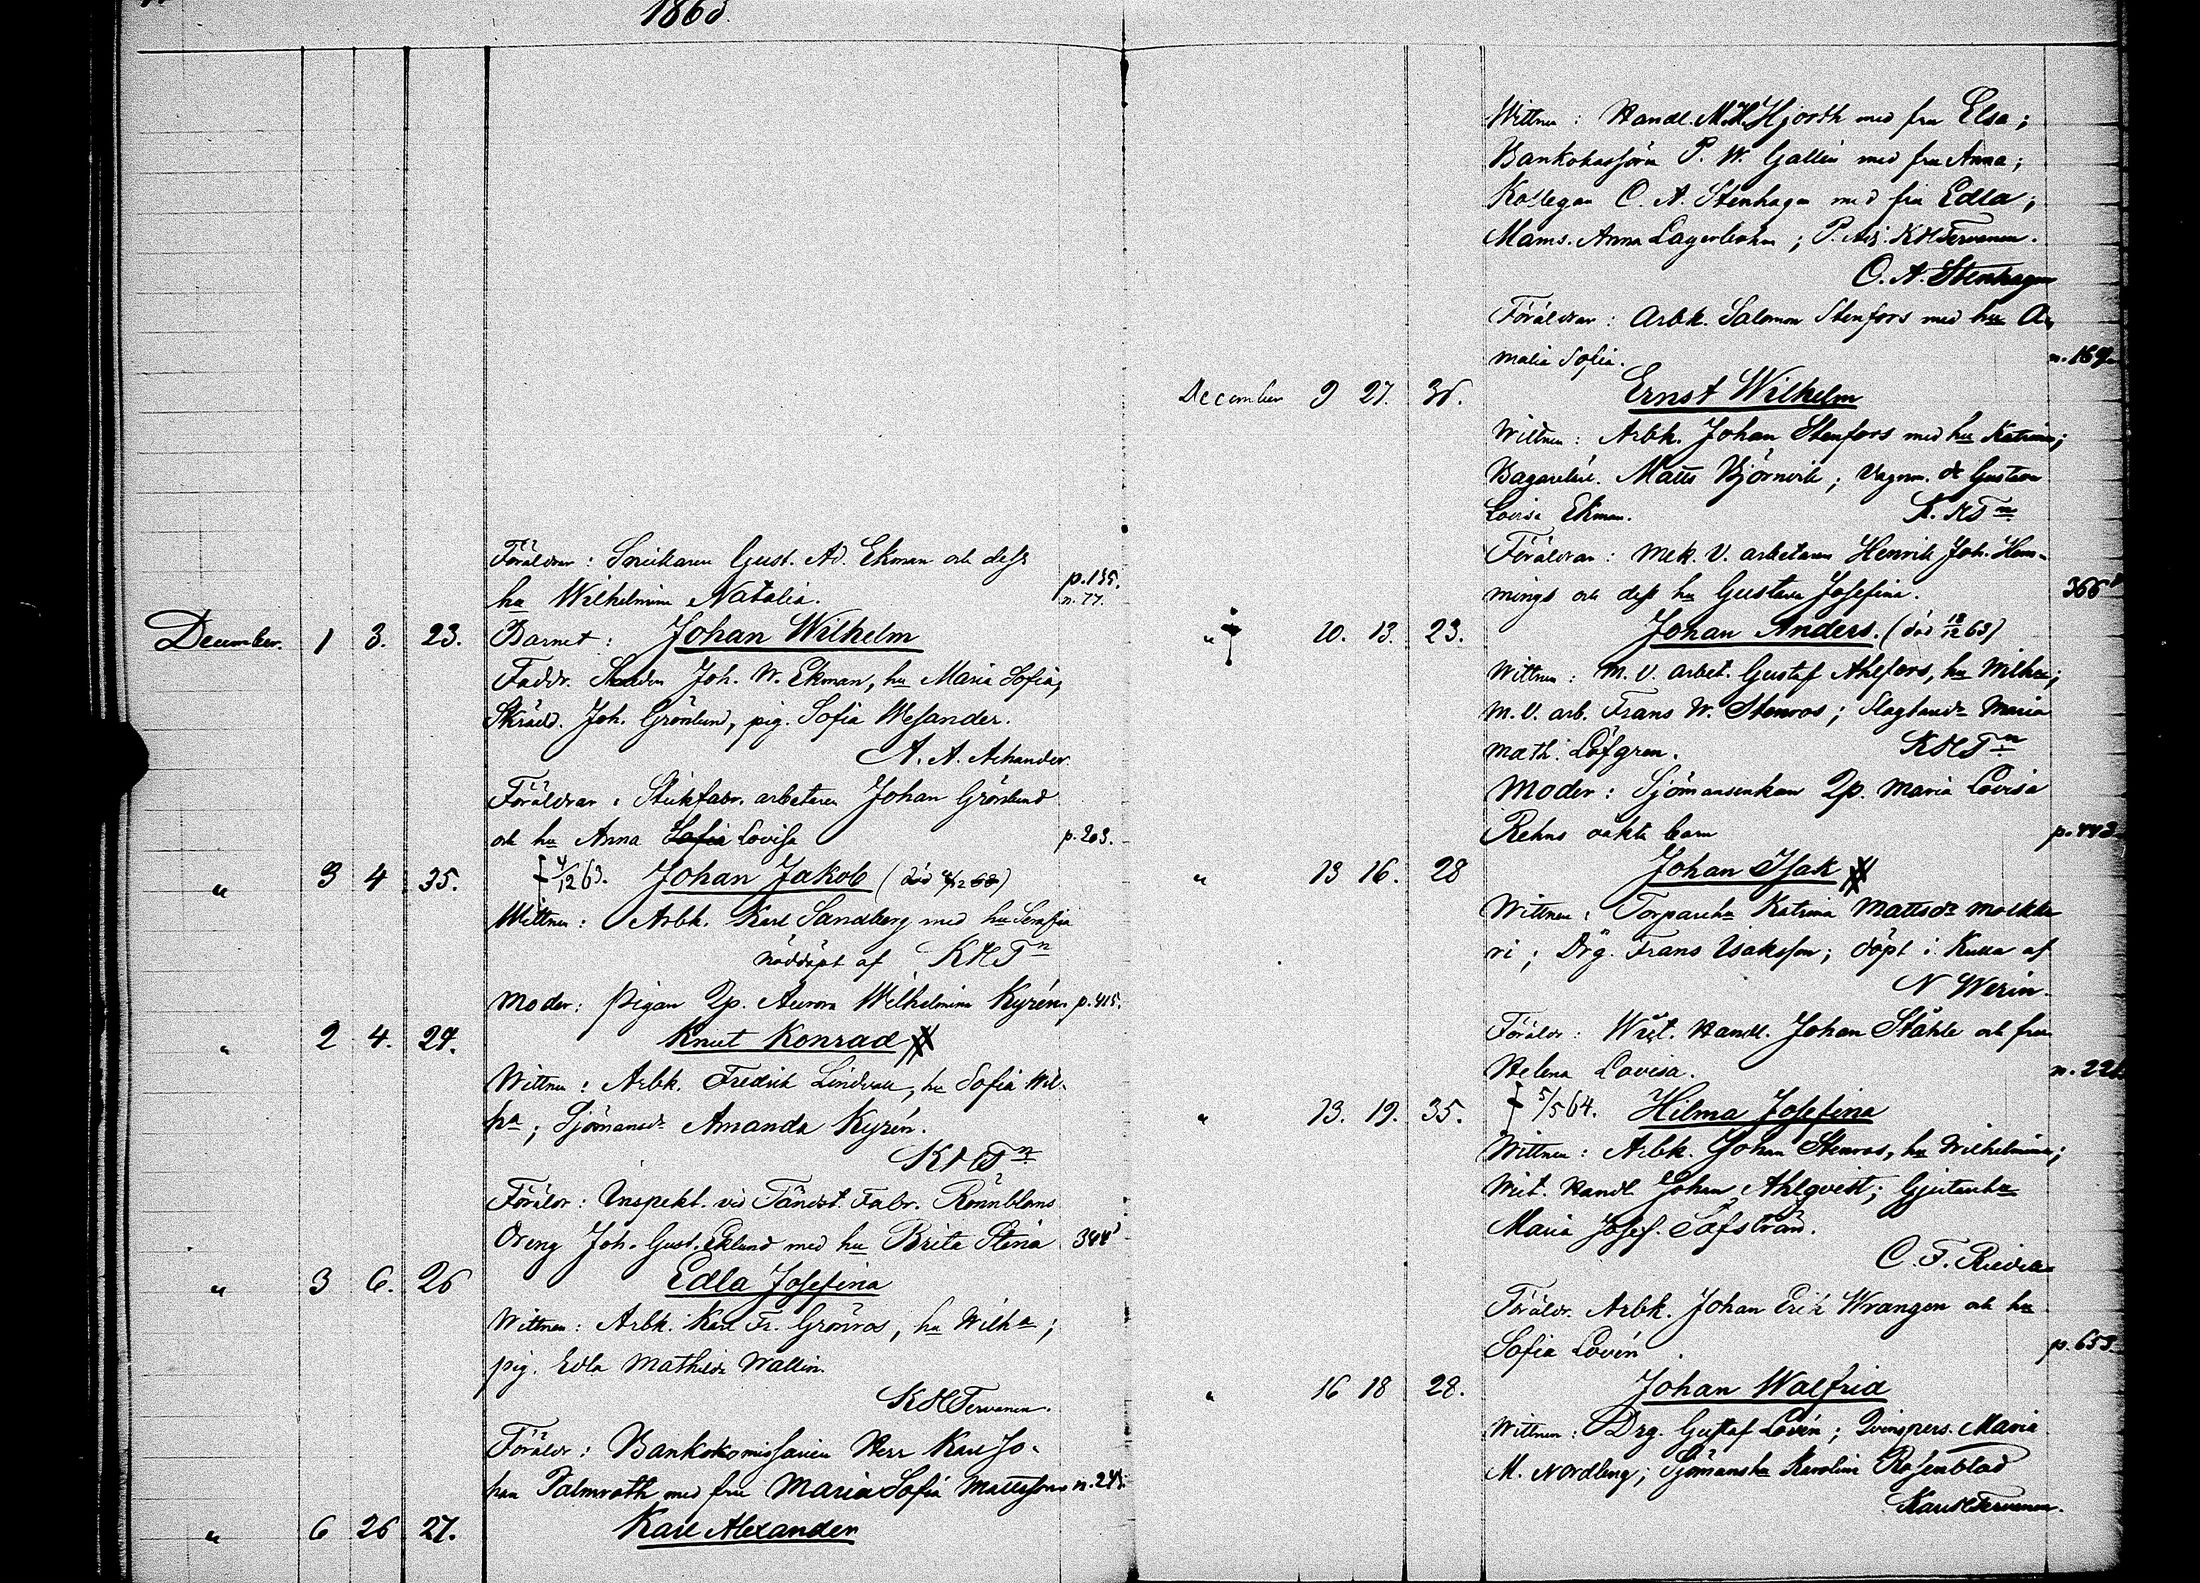 1863.
Föräldrar: Snickaren Gust. Ad. Ekman och dess
hu Wilhelmina Natalia. p. 135. n. 77.
December. 1 3. 23. Barnet: Johan Wilhelm
Faddr. Joh. W. Ekman, hu Maria Sofia,
Skrädd. Joh. Grönlund, pig. Sofia Wesander.
A. A. Achander.
Föräldrar: arbetaren Johan Grönlund
och hu Anna Sofia Lovisa p. 203.
" 3 4 35. † 4/12 63. Johan Jakob (död 4/12 63)
Wittnen: Arbk. Karl Sandberg med hu Serafia
nöddöpt af KHTn
Moder: Pigan Qp. Aurora Wilhelmina Kyrén p. 415.
" 2 4. 24. Knut Konrad #
Wittnen: Arbk. Fredrik Lindvall, hu Sofia Wil-
ha; Sjömansd. Amanda Kyrén.
KHTn
Föräldr: Inspekt. vid Tändst. Fabr. Rönnbloms
Öreng Joh. Gust. Eklund med hu Brita Stina 344
" 3 6. 26 Edla Josefina
Wittnen: Arbk. Karl Fr. Grönros, hu Wilha;
pig. Edla Mathilda Wallin.
KHTervonen.
Föräldr: Bankokomissarien Herr Karl Jo-
han Palmroth med fru Maria Sofia Mattsson n. 245
" 6 26 27. Karl Alexander
Wittnen: Handl. M. H. Hjorth med fru Elsa;
Bankokassören P. W. Gallén med fru Anna;
Kollegan O. A. Stenhagen med fru Edla;
Mams. Anna Lagerbohm; P. Adj. KHTervonen.
O. A. Stenhagen
Föräldrar: Arbk. Salomon Stenfors med hu A-
malia Sofia. n. 169
December 9 27. 36. Ernst Wilhelm
Wittnen: Arbk. Johan Stenfors med hu Katrina;
Matts Björnvik; Vagnm. dr Gustava
Lovisa Ekman. K. HTn
Föräldrar: Mek. V. arbetaren Henrik Joh. Hem-
mings och dess hu Gustava Josefina. 366
" † 10. 13. 23. Johan Anders. (död 18/12 63)
Wittnen: M. V. arbet. Gustaf Ahlfors, hu Wilha;
M. V. arb. Frans W. Stenros; Maria
Math. Löfgren. KHTn
Moder: Sjömansenkan Qp. Maria Lovisa
Rehns oäkta barn p. 443
" 13 16. 28 Johan Isak #
Wittnen: Torpareha Katrina Mattsdr Molkka
ri; Drg. Frans Isaksson; döpt i Kulla af
N Werin.
Föräldr: Handl. Johan Ståhle och fru
Helena Lovisa. n. 221
" 13. 19. 35. † 5/5 64. Hilma Josefina
Wittnen: Arbk. Johan Stenros, hu Wilhelmina;
Handl. Johan Ahlqvist; Gjutareha
Maria Josef. Säfström.
C. F.
Föräldr. Arbk. Johan Erik Wrangen och hu
Sofia Lovén p. 653
" 16 18 28. Johan Walfrid
Wittnen: Drg. Gustaf Lovén; Qvinspers. Maria
M. Nordling; Sjömansha Karolina Rosenblad
Karl HTervonen.